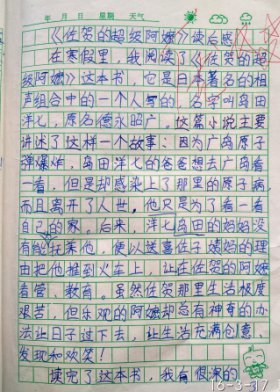 年 月 日 星期 天气
《佐贺的超级阿嬷》读后感
在寒假里，我阅读了《佐贺的超
级阿嬷》这本书，它是日本著名的相
声组合中的一个人写的，名字叫岛田
洋七，原名德永昭广，这篇小说主要
讲述了这样一个故事：因为广岛原子
弹爆炸，岛田洋七的爸爸想去广岛看
一看，但是却感染上了那里的原子病
而且离开了人世，他只是为了看一看
自己的家。后来，洋七岛田的妈妈没
有能抚养他，便以送喜佐子姨妈的理
由把他推到火车上，让在佐贺的阿嬷
看管，教育。虽然佐贺那里生活极度
艰苦，但乐观的阿嬷却总有神奇的办
法让日子过下去，让生活充满创意，
发现和欢笑！
读完了这本书，我有很深的